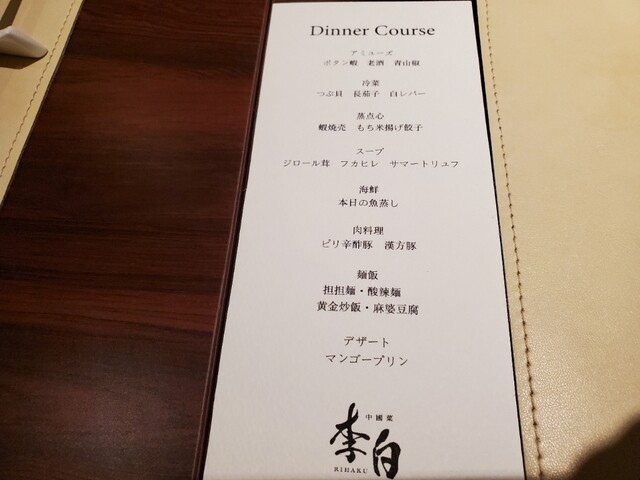 Dinner Course
アミューズ
ボタン蝦　老酒　青山椒
冷菜
つぶ貝　長茄子　白レバー
蒸点心
蝦焼売　もち米揚げ餃子
スープ
ジロール茸　フカヒレ　サマートリュフ
海鮮
本日の魚蒸し
肉料理
ピリ辛酢豚　漢方豚
麺飯
担担麺・酸辣麺
黄金炒飯・麻婆豆腐
デザート
マンゴープリン
中國菜
李白
RIHAKU